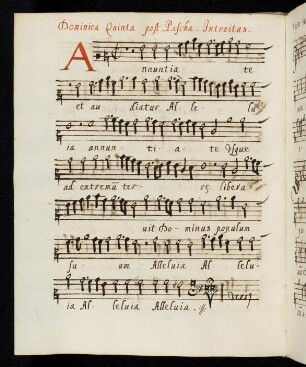 Dominica Quinta post Pascha. Introitus.
Annuntia te
et au diatur Al le lu
ia annun ti a te Usque
ad extremũ ter rę libera
uit Do minus populum
su um Alleluia Al lelu
ia Al leluia Alleluia.